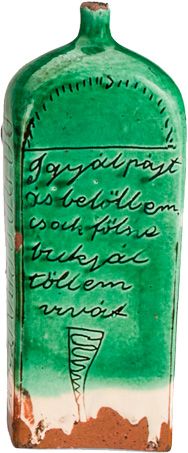 Igyál pajt
ás belöllem
csak föl ne
bukjál
töllem
vivát